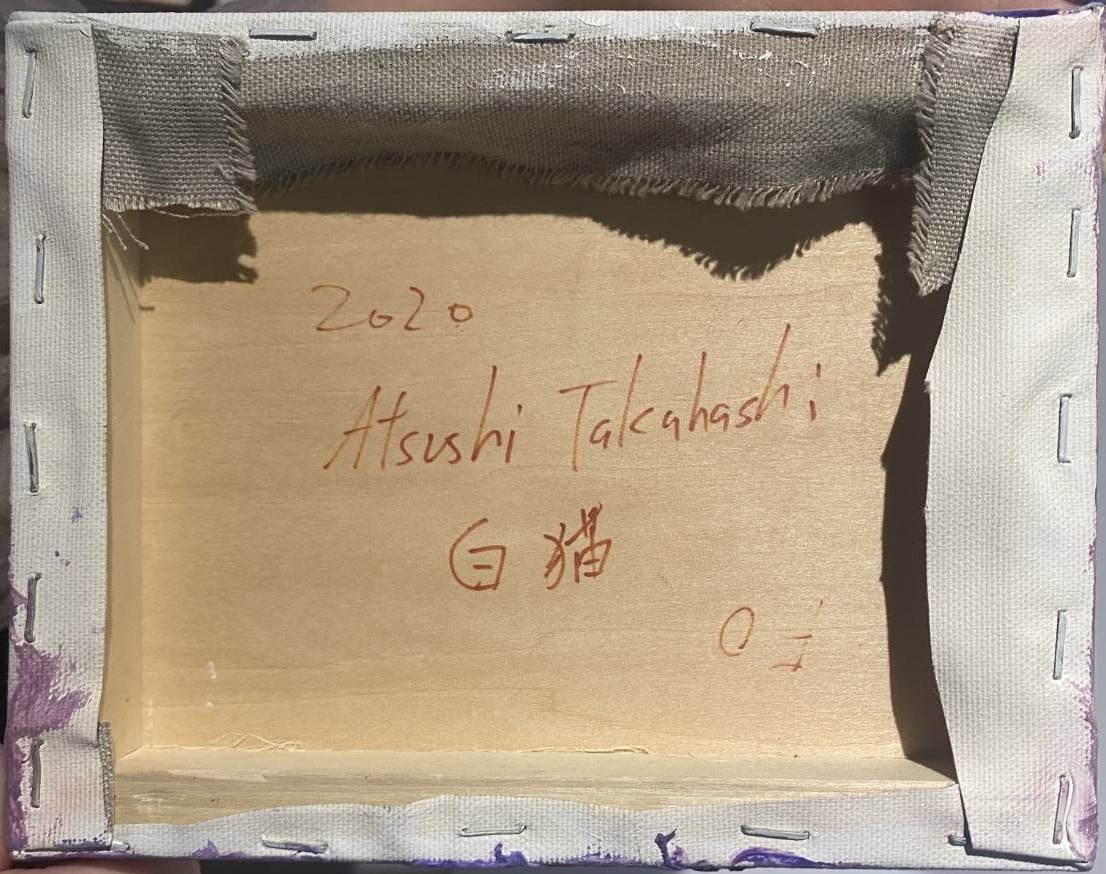 2020
Atsushi Takahashi
白猫
0号